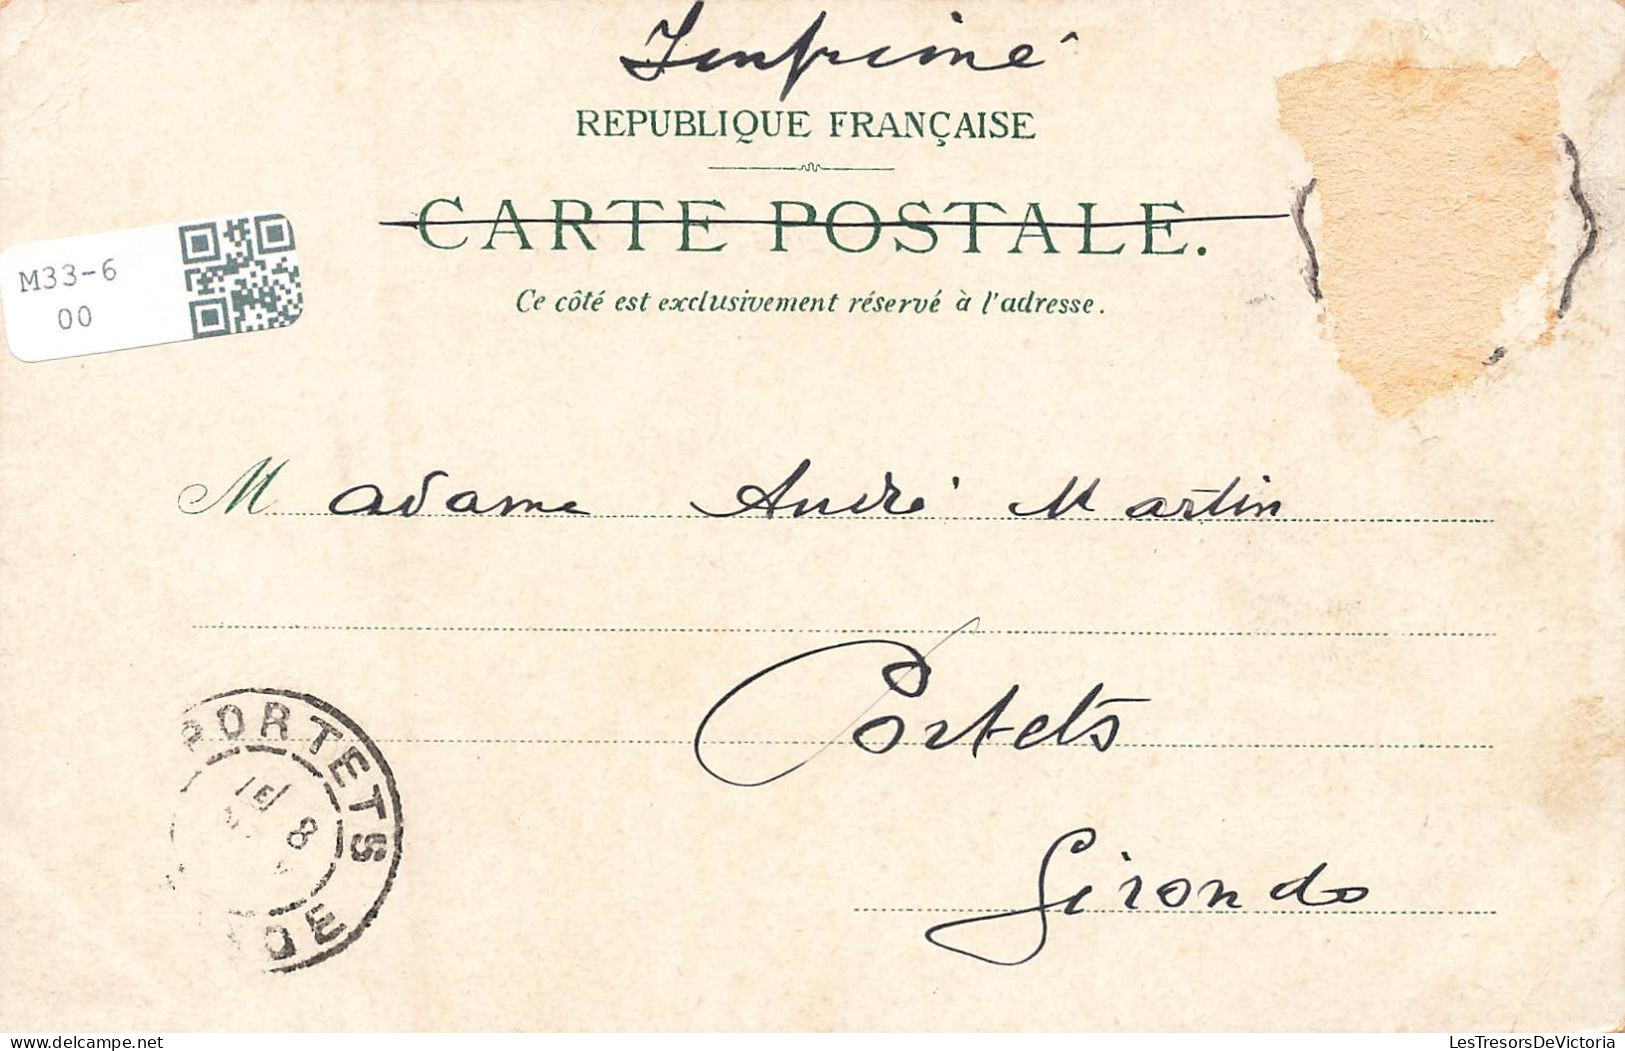 Imprimé
REPUBLIQUE FRANÇAISE
CARTE POSTALE.
Ce côté est exclusivement réservé à l'adresse.
M33-6
00
Madame André Martin
Portets
Gironde
PORTETS
DE
LesTresorsDeVictoria